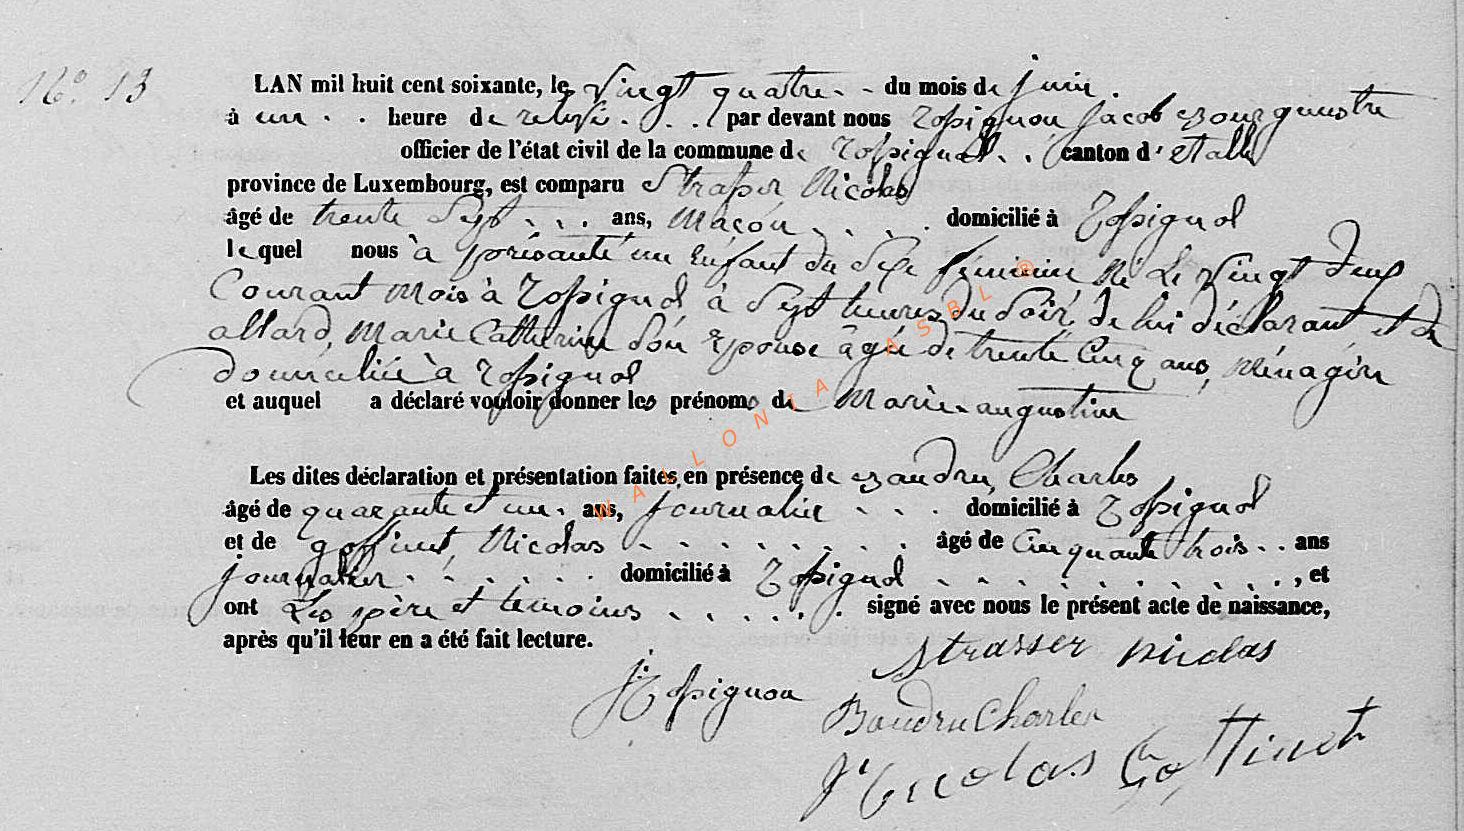 N° 13
LAN mil huit cent soixante, le Vingt quatre - - du mois de juin.
à un . . heure de relevée . . . par devant nous Rossignon Jacob Bourguestre
officier de l'état civil de la commune de Rossignol . . canton d'Etalle
province de Luxembourg, est comparu Strasser Nicolas
âgé de trente Sept - . . ans, Maçon . . . . domicilié à Rossignol
lequel nous à présanté un Enfant du Sexe féminin Né Le Vingt deux
Courant mois à Rossignol à Sept heures du Soir, de lui déclarant et de
allard, Marie Catherine Son Epouse âgée de trente Cinq ans, Ménagère
domiciliée à Rossignol
et auquel a déclaré vouloir donner les prénoms de Marie-augustine
Les dites déclaration et présentation faites, en présence de Baudru, Charles
âgé de quarante et un. ans, journalier - - . domicilié à Rossignol
et de goffinet, Nicolas . . . . . . . . . âgé de Cinquante trois . . ans
journalier . . . . . . domicilié à Rossignol . . . . . . . . . . . . , et
ont Les père et temoins . . . . . . signé avec nous le présent acte de naissance,
après qu'il leur en a été fait lecture.
Strasser nicolas
J Rossignon
Baudru Charles
Nicolas Goffinet
WALLONIA ASBL ®